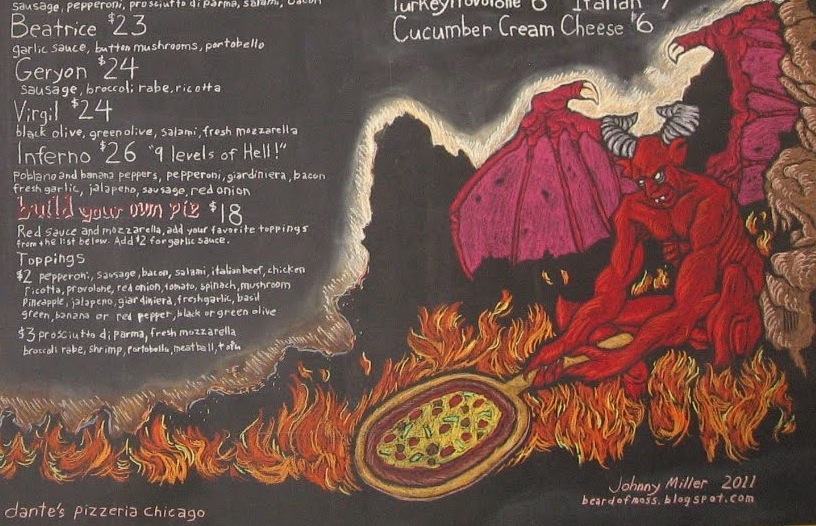 sausage, pepperoni, prosciutto di parma, salami, bacon
Beatrice $23
garlic sauce, button mushrooms, portobello
Geryon $24
sausage, broccoli rabe, ricotta
Virgil $24
black olive, green olive, salami, fresh mozzarella
Inferno $26 "9 levels of Hell!"
poblano and banana peppers, pepperoni, giardiniera, bacon
fresh garlic, jalapeno, sausage, red onion
build your own pie $18
Red sauce and mozzarella, add your favorite toppings
from the list below. Add $2 for garlic sauce.
Toppings
$2 pepperoni, sausage, bacon, salami, italian beef, chicken
ricotta, provolone, red onion, tomato, spinach, mushroom
pineapple, jalapeno, giardiniera, fresh garlic, basil
green, banana or red pepper, black or green olive
$3 prosciutto di parma, fresh mozzarella
broccoli rabe, shrimp, portobello, meatball, tofu
Turkey/Provolone 6 Italian 7
Cucumber Cream Cheese $6
Johnny Miller 2011
beardofmoss.blogspot.com
dante's pizzeria chicago